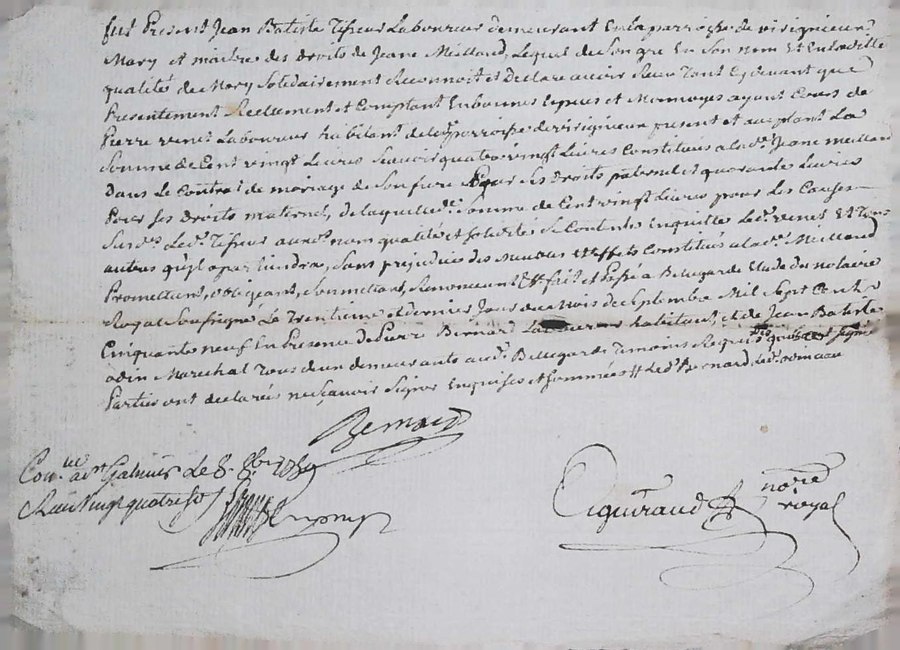 fut Present Jean Batiste Tifeur Laboureur demeurant En la parroisse de virignieux
Mary et maistre des droits de Jeane Meilland, Lequel de Son gre En Son nom Et En laditte
qualité de Mary Solidairement Reconnoit et Declare avoir Receu Tant Cy devant que
Presentement Reellement et Comptant En bonnes Especes et Monnoyes ayant Cours de
Pierre venet Laboureur habitant de lad. parroisse de virignieux present et acceptant La
Somme de Cent vingt Livres Scavoir quatre vingt Livres Constitués a lad. Jeane meilland
Dans Le Contrat de mariage de Son frere Pour Ses Droits paternel et quarante Livres
Pour Ses Droits maternel, De laquelle d. Somme de Cent vingt Livres pour Les Causes
Susd. Led. Tifeur aux d. nom qualité et Solidité Se Contente En quitte Led. venet Et Tous
autres qu'il apartiendra, Sans prejudice des Meubles et Effets Constitués a lad. Meilland
Promettant, obligeant, Soumettant, Renonceant &c fait et Passé a Bellegarde Etude du notaire
Royal Soussigné Le Trentieme et dernier Jour du Mois de Septembre Mil Sept Cents
Cinquante neuf En Presence de Pierre Bernard habitant, et de Jean Batiste
odin Marechal Tous deux demeurants aud. Bellegarde Temoins Requis Les
Parties ont declarés ne Scavoir Signer Enquises et Sommées Led. Bernard
Bernard
Con.lé a St Galmier Le 8. 8bre 1759
Receu vingt quatre sols
Aiguiraud
no.re
royal